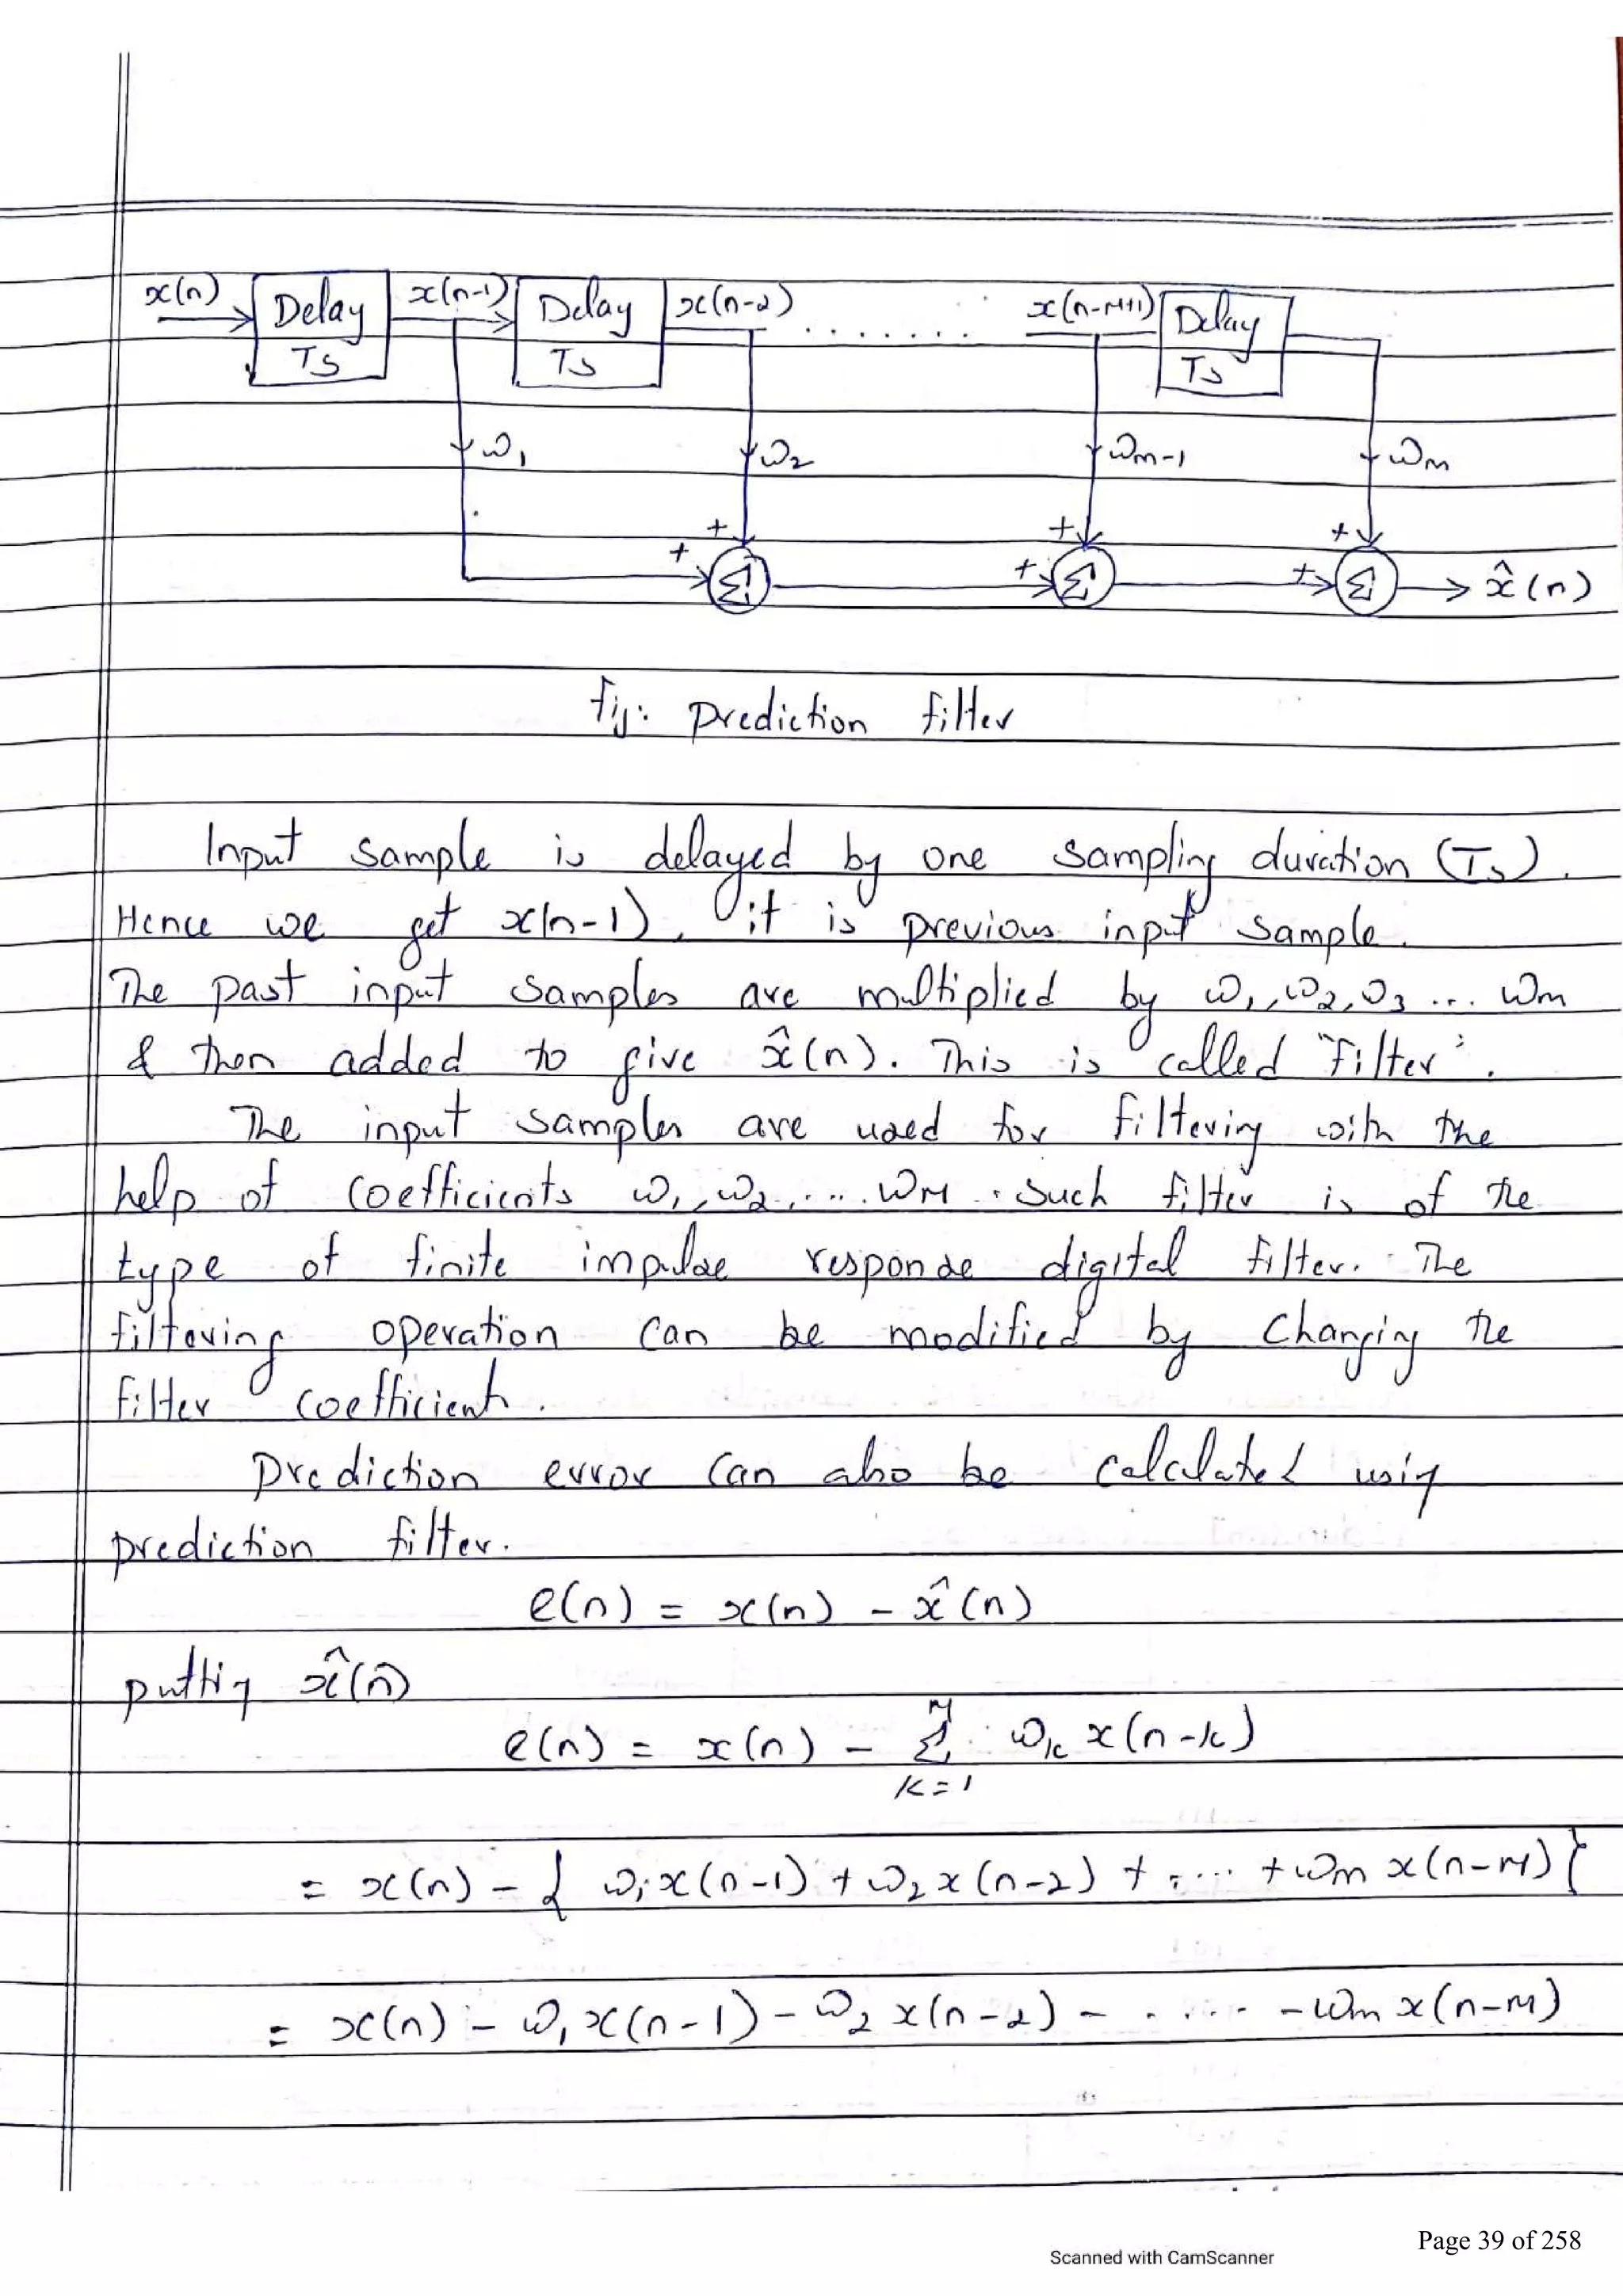 x(n) Delay Ts x(n-1) Delay Ts x(n-2) ........ x(n-M+1) Delay Ts
ω₁ ω₂ ωm-1 ωm
+ + +
+ Σ + Σ + Σ x̂(n)
fig: prediction filter
Input sample is delayed by one sampling duration (Ts).
Hence we get x(n-1), it is previous input sample.
The past input samples are multiplied by ω₁, ω₂, ω₃ ... ωm
& then added to give x̂(n). This is called "Filter".
The input samples are used for filtering with the
help of coefficients ω₁, ω₂, .... ωM. Such filter is of the
type of finite impulse response digital filter. The
filtering operation can be modified by changing the
filter coefficients.
Prediction error can also be calculated using
prediction filter.
e(n) = x(n) - x̂(n)
putting x̂(n)
e(n) = x(n) - M Σ k=1 ωk x(n-k)
= x(n) - { ω₁x(n-1) + ω₂x(n-2) + .... + ωm x(n-M) }
= x(n) - ω₁x(n-1) - ω₂ x(n-2) - ..... - ωm x(n-M)
Page 39 of 258
Scanned with CamScanner